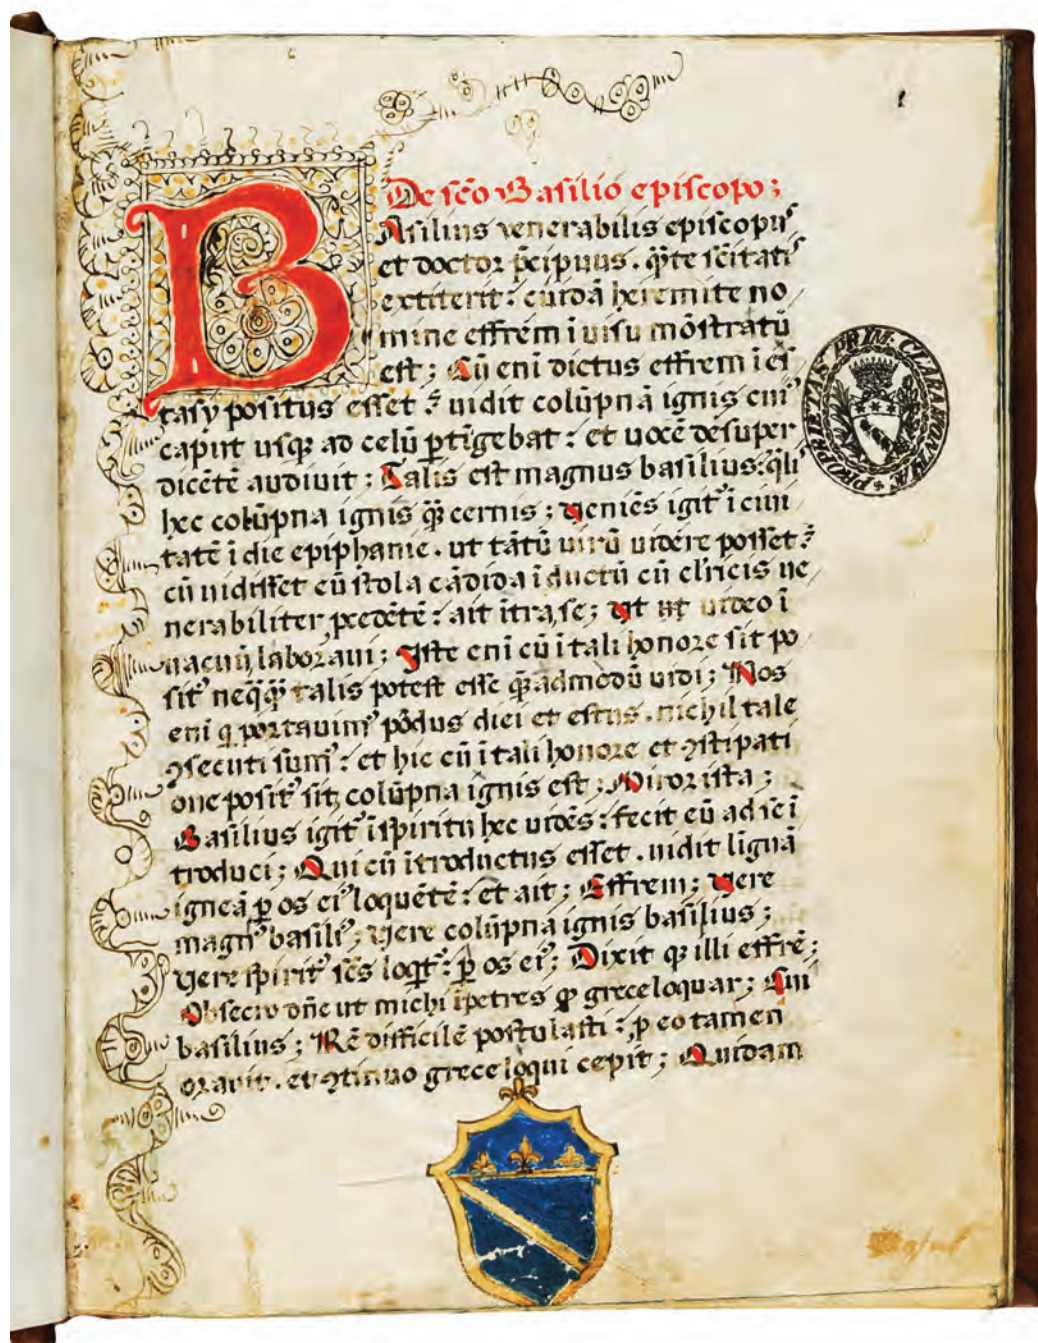 De sc̄o Basilio episcopo;
BAsilius venerabilis episcopus
et doctor p̄cipuus. q̄te sc̄itatis
extiterit: cuidā heremite no/
mine effrem ī uisu mōstratū
est; Cū enī dictus effrem ī ex
tasy positus esset: uidit colūpnā ignis cui'
caput usq; ad celū ꝑtīgebat: et uocē desuper
dicētē audiuit: Talis est magnus basilius: q̄lis
hec colūpna ignis q̄ȝ cernis; Veniēs igit' ī ciui
tatē ī die epiphanie. ut tātū uirū uidere posset:
cū uidisset eū stola cādida īductū cū cl'ricis ue/
nerabiliter p̄cedētē: ait ītra se; Vt ut uideo ī
uacuū laboraui; Iste enī cū ī tali honore sit po
sit' neq̄q̄ȝ talis potest esse q̄ȝadmodū uidi; Nos
enī q̄ portauim' pōdus diei et estus. nichil tale
ꝯsecuti sum': et hic cū ī tali honore et ꝯstipati
one posit' sit, colūpna ignis est; Miror ista;
Basilius igit' īspiritu hec uidēs: fecit eū ad se ī
troduci; Qui cū ītroductus esset. uidit līguā
igneā ꝑ os ei' loquētē: et ait; Effrem; Vere
magn' basili'; Vere colūpna ignis basilius;
Vere spirit' sc̄s loq̄t': ꝑ os ei'; Dixit q; illi effrē;
Obsecro dn̄e ut michi īpetres ꝙ grece loquar; Cui
basilius; Rē difficilē postulasti: ꝓ eo tamen
orauit. et ꝯtinuo grece loqui cepit; Quidam
PROPRIETAS PRIM: CLARAMONTANÆ